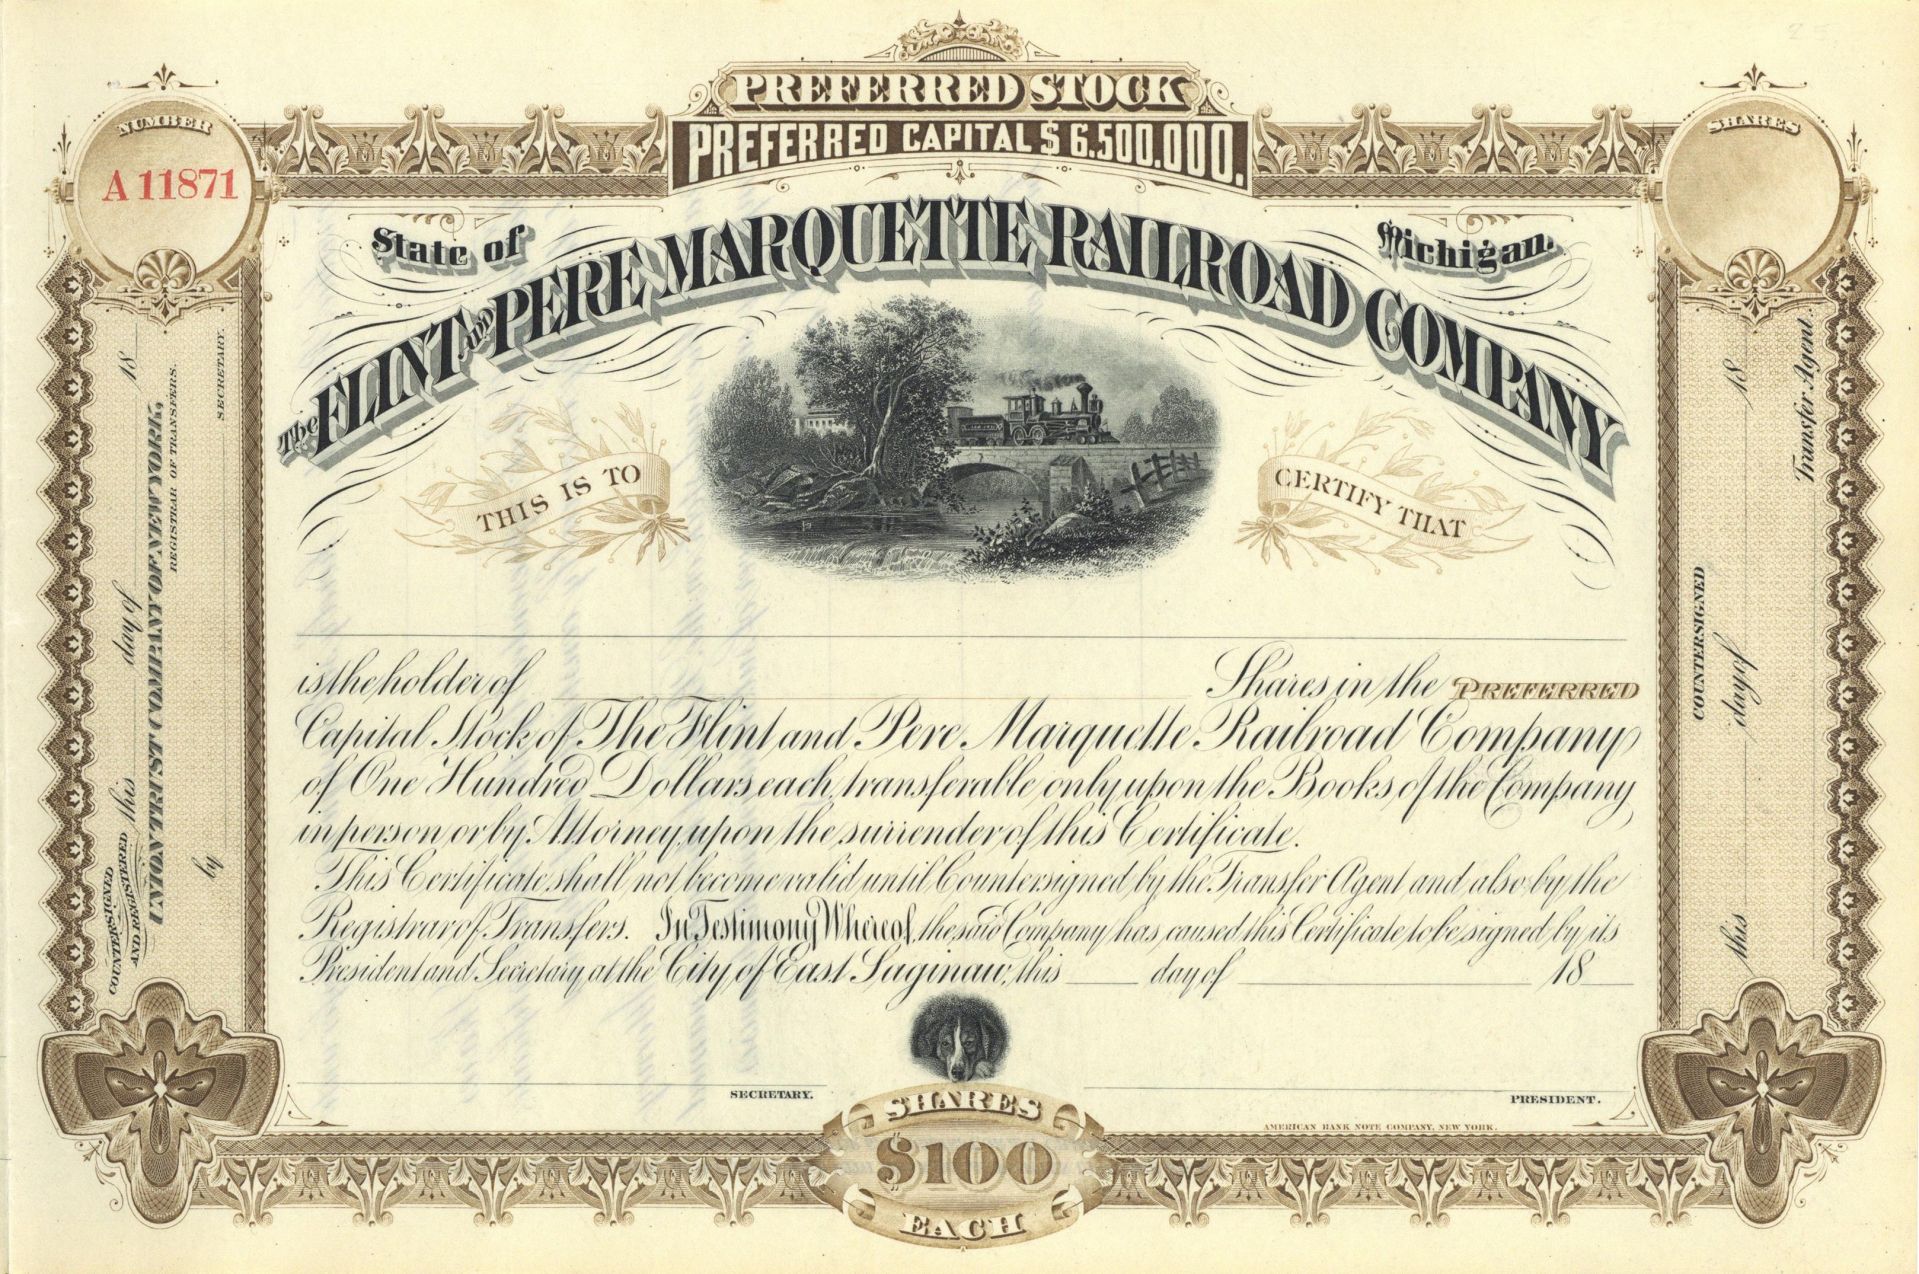 PREFERRED STOCK
PREFERRED CAPITAL $6.500.000.
NUMBER
A 11871
SHARES
State of
Michigan.
The FLINT AND PERE MARQUETTE RAILROAD COMPANY
THIS IS TO
CERTIFY THAT
is the holder of Shares in the PREFERRED
Capital Stock of The Flint and Pere Marquette Railroad Company
of One Hundred Dollars each, transferable only upon the Books of the Company
in person or by Attorney, upon the surrender of this Certificate.
This Certificate shall not become valid until Countersigned by the Transfer Agent and also by the
Registrar of Transfers. In Testimony Whereof, the said Company has caused this Certificate to be signed by its
President and Secretary at the City of East Saginaw, this day of 18
SECRETARY.
PRESIDENT.
AMERICAN BANK NOTE COMPANY, NEW YORK.
SHARES
$100
EACH
COUNTERSIGNED
AND REGISTERED this day of 18
UNION TRUST COMPANY OF NEW YORK,
REGISTRAR OF TRANSFERS.
by SECRETARY.
COUNTERSIGNED
this day of 18
Transfer Agent.